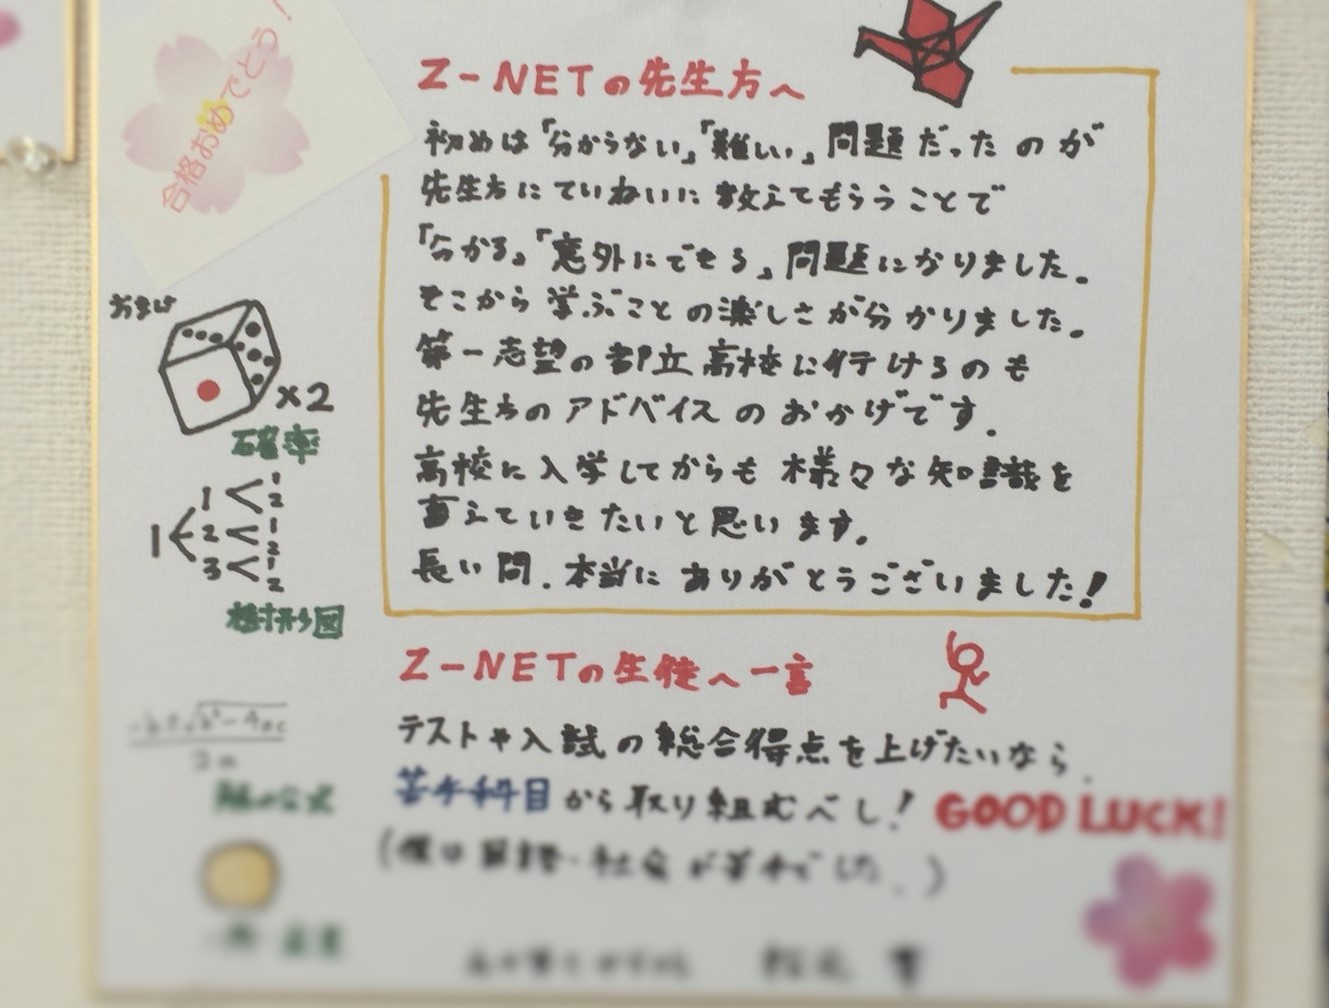 合格おめでとう!
Z-NETの先生方へ
初めは「分からない」「難しい」問題だったのが
先生方にていねいに教えてもらうことで
「分かる」「意外にできる」問題になりました。
そこから学ぶことの楽しさが分かりました。
第一志望の都立高校に行けるのも
先生方のアドバイスのおかげです。
高校に入学してからも様々な知識を
蓄えていきたいと思います。
長い間、本当にありがとうございました!
おまけ
×2
確率
1 1 1 2
2 1 2
3 1 2
樹形図
Z-NETの生徒へ一言
テストや入試の総合得点を上げたいなら、
苦手科目から取り組むべし! GOOD LUCK!
(僕は国語・社会が苦手でした。)
解の公式